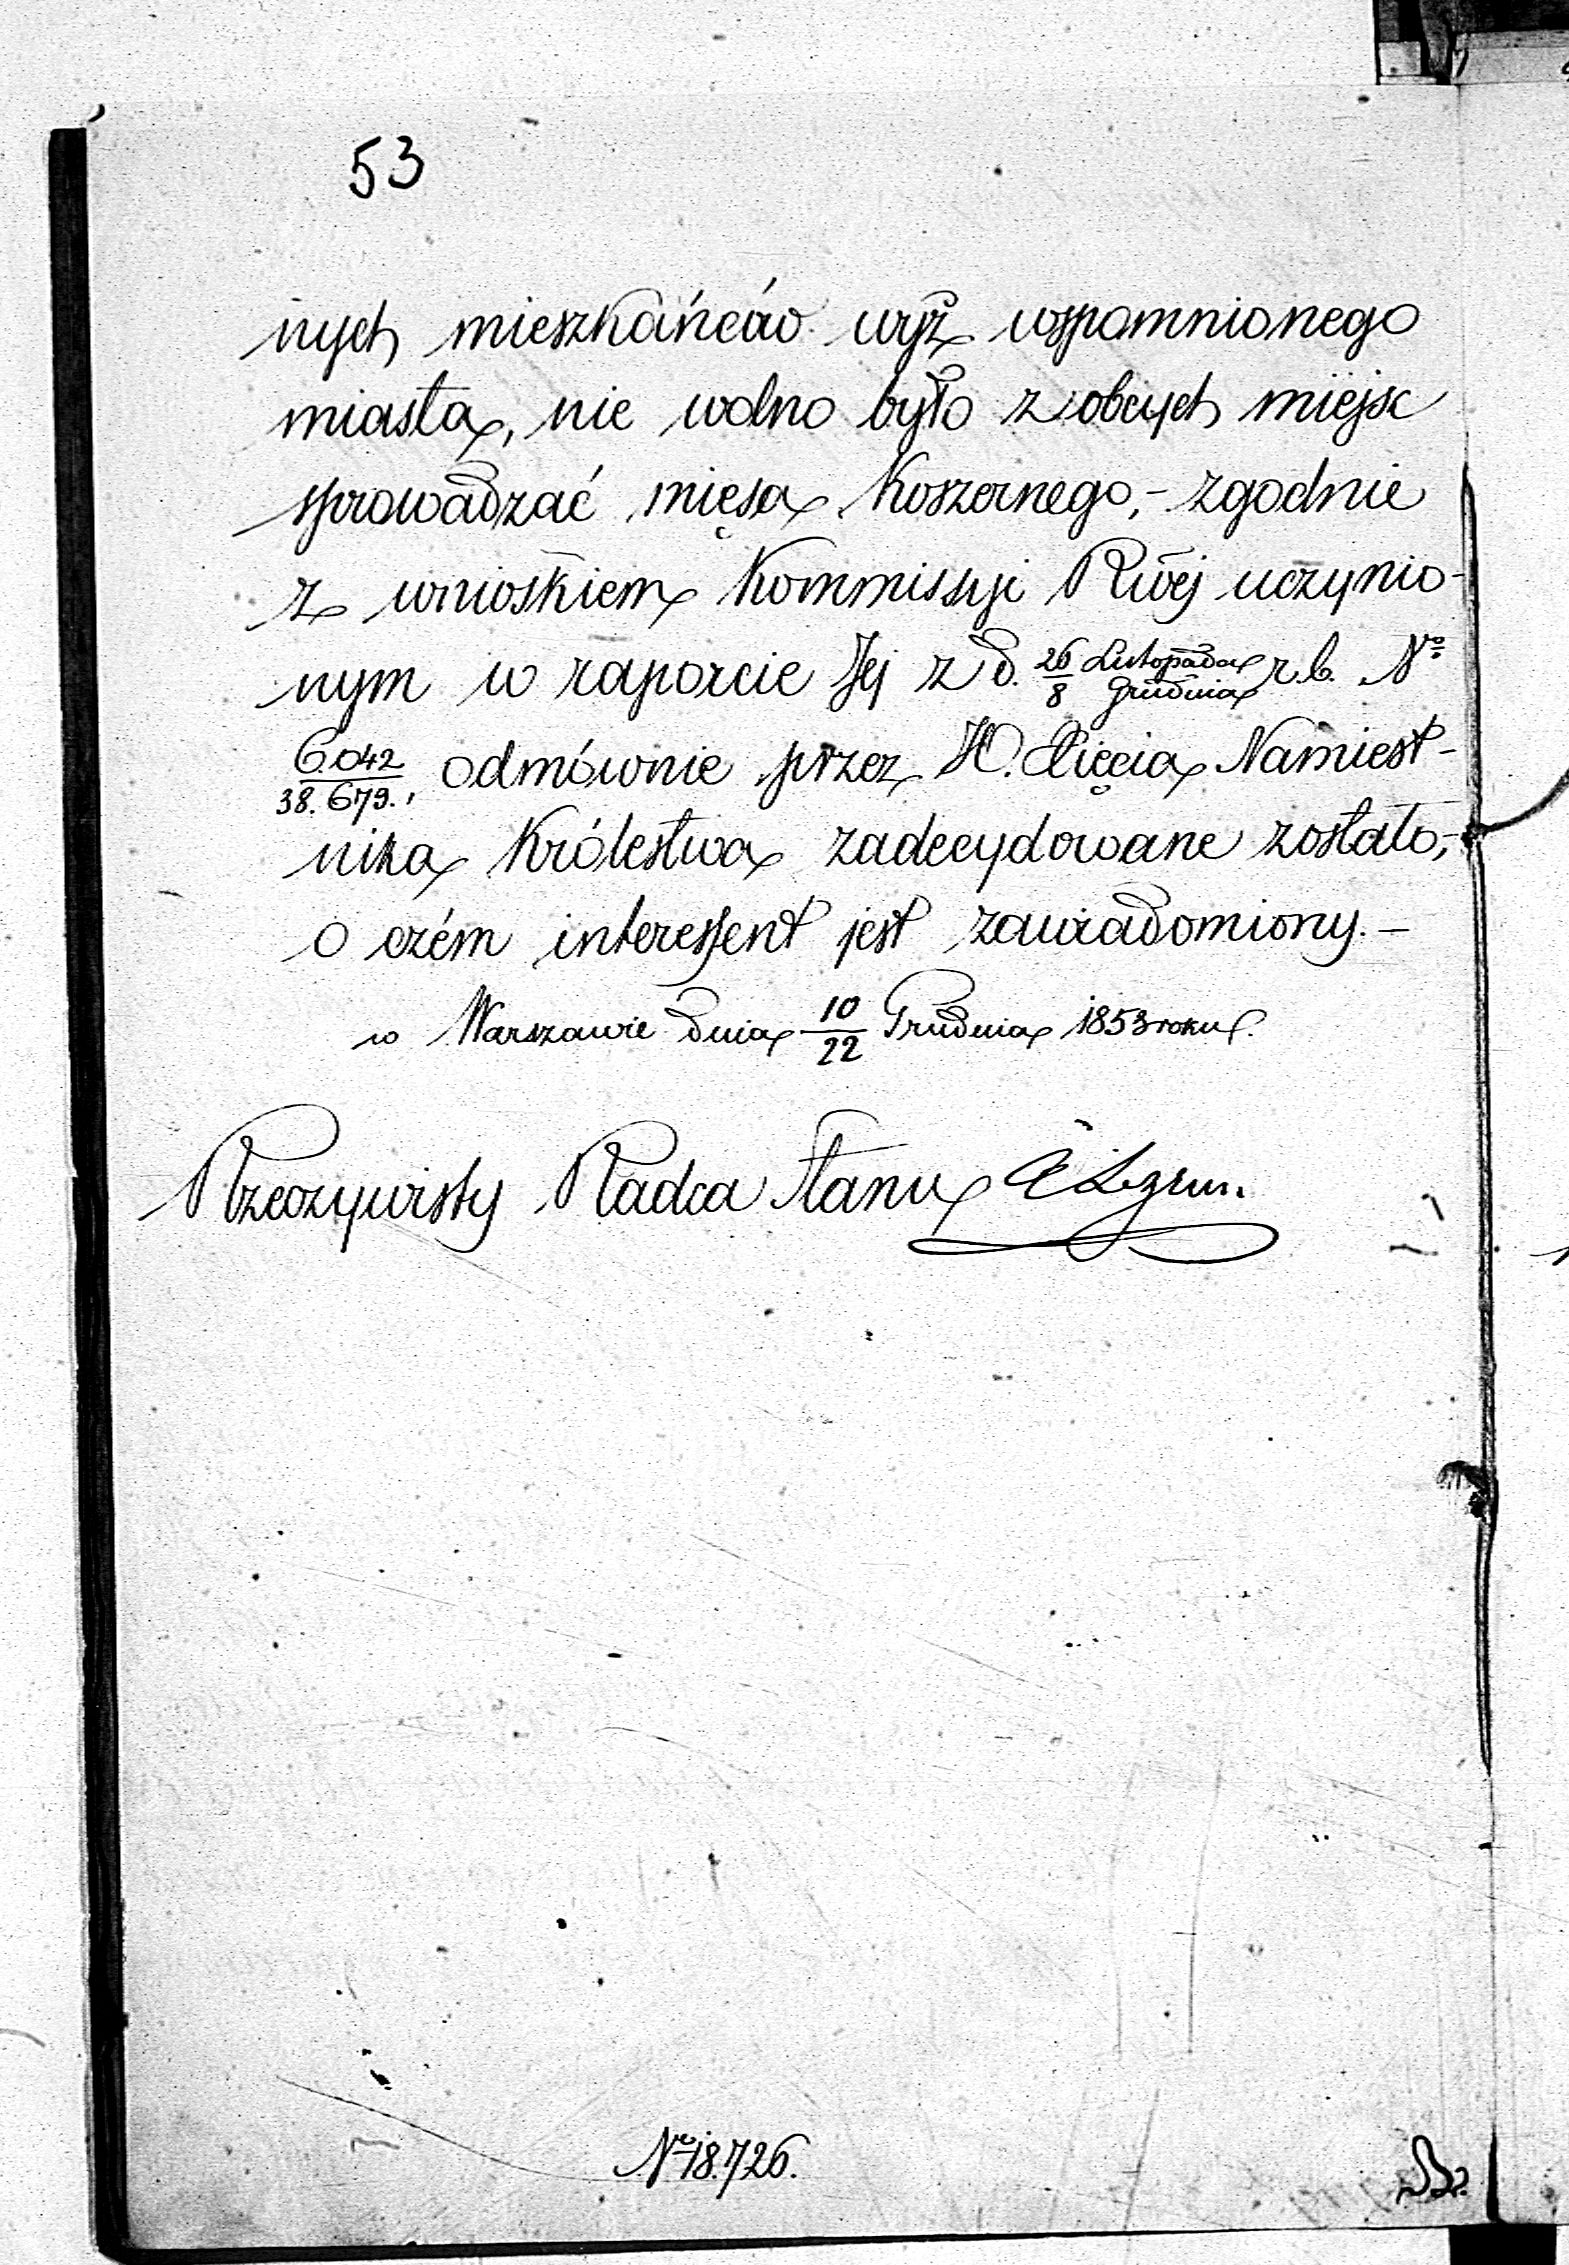 53
nych mieszkańców wyż wspomnionego
miasta, nie wolno było z obcych miejsc
sprowadzać mięsa Koszernego,- zgodnie
z wnioskiem Kommissyi Rwéj uczynio-
nym w raporcie Jej z d. 26/8 Listopada/Grudnia r.b. No
6.042/38.679., odmównie przez JO. Xięcia Namiest-
nika Królestwa zadecydowane zostało,-
o czém interessent jest zawiadomiony.-
w Warszawie dnia 10/22 Grudnia 1853 roku.
Rzeczywisty Radca Stanu
No 18.726.